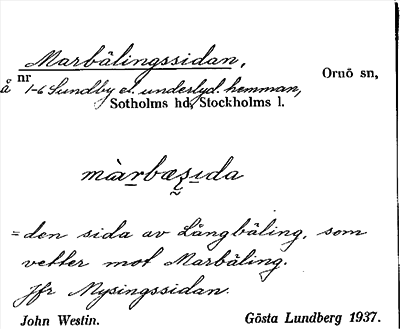 Marbälingssidan,
Ornö sn,
å nr 1-6 Sundby el. underlyd. hemman,
Sotholms hd, Stockholms l.
= den sida av Långbäling, som
vetter mot Marbäling.
Jfr Mysingssidan.
John Westin. Gösta Lundberg 1937.